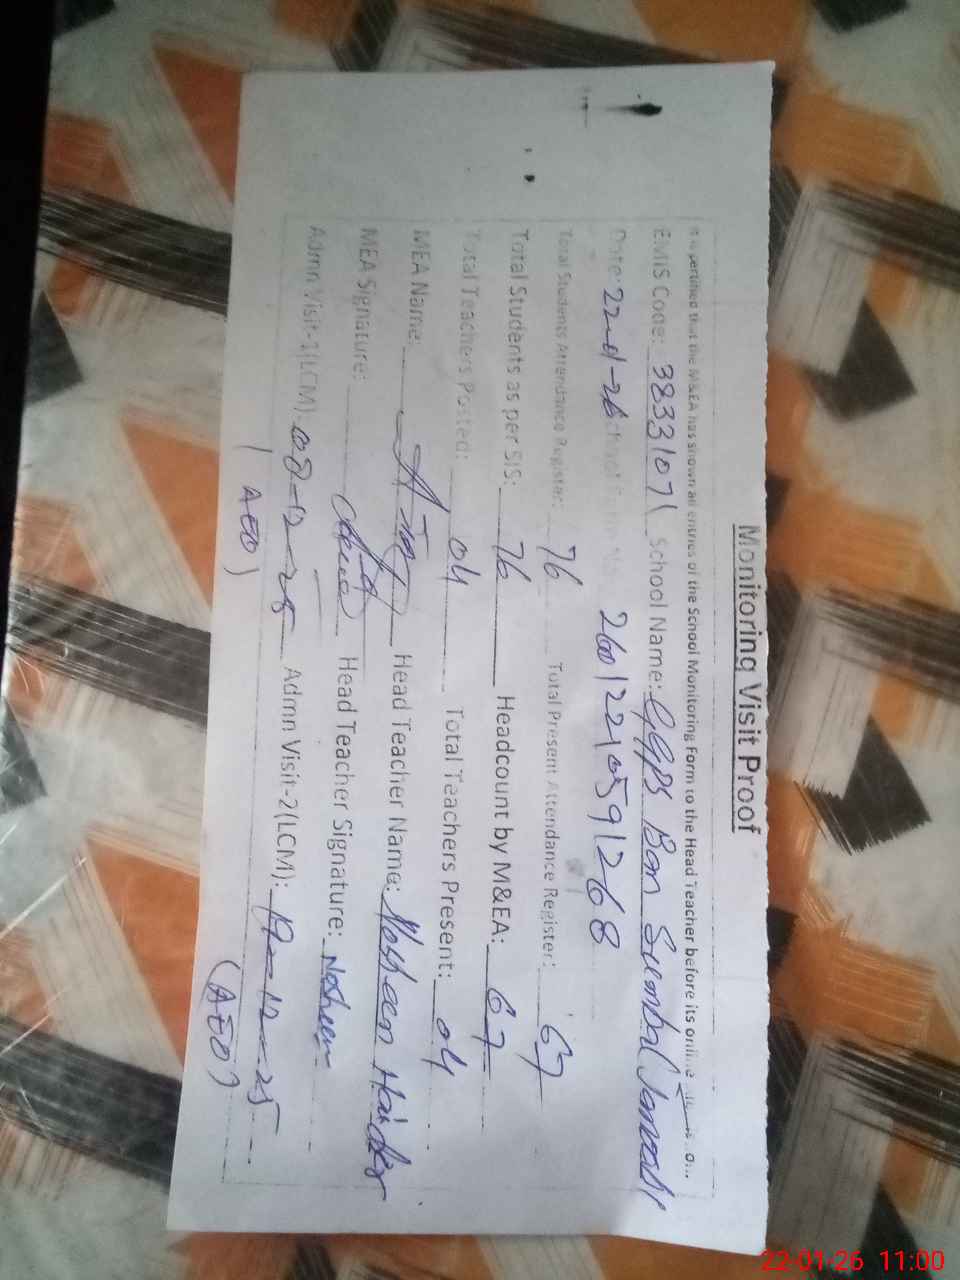 Monitoring Visit Proof
It is certified that the M&EA has shown all entries of the School Monitoring Form to the Head Teacher before its online
EMIS Code: 38331071 School Name: GGPS Ban Sumbal Janoobi
Date: 22-01-26 260122105912 68
Total Students Attendance Register: 76 Total Present Attendance Register: 67
Total Students as per SIS: 76 Headcount by M&EA: 67
Total Teachers Posted: 04 Total Teachers Present: 04
MEA Name: Head Teacher Name: Nosheen Haider
MEA Signature: Head Teacher Signature: Nosheen
Admn Visit-1(LCM): 08-12-25 Admn Visit-2(LCM): 19-12-25
(AEO) (AEO)
22-01-26 11:00